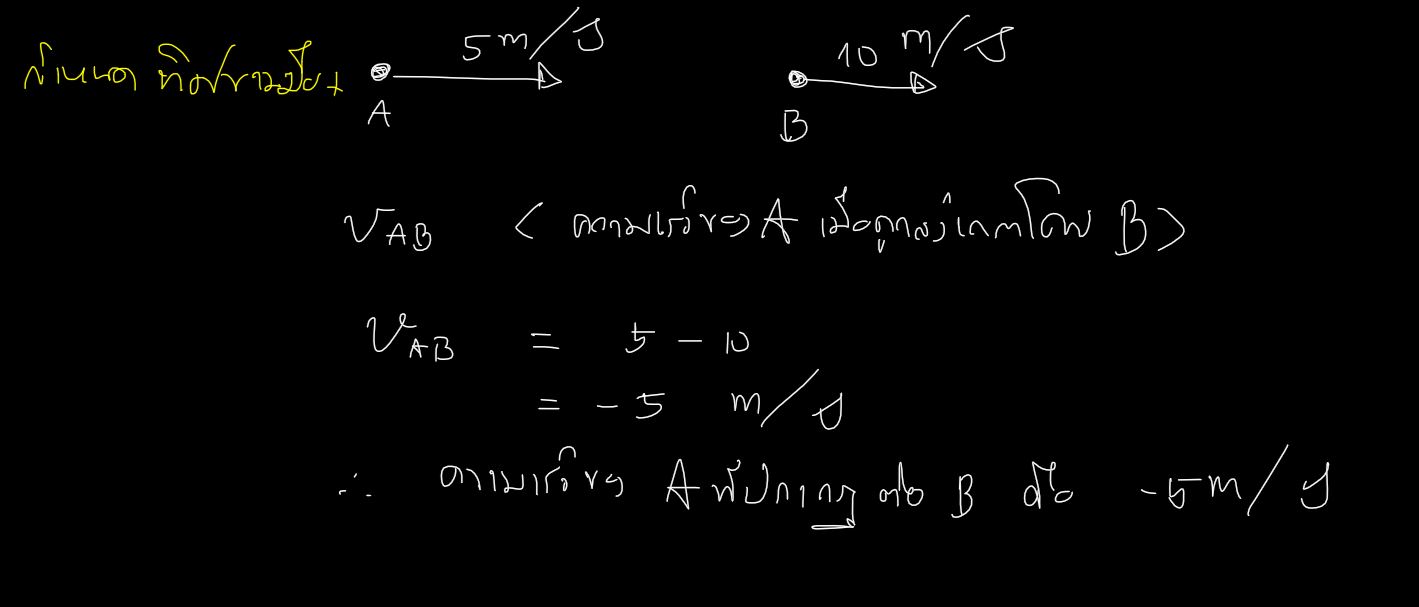 กำหนด ทิศขวาเป็น + 5 m/s 10 m/s
A B
V_AB < ความเร็วของ A เมื่อถูกสังเกตโดย B >
V_AB = 5 - 10
= - 5 m/s
∴ ความเร็วของ A ที่ปรากฏ ต่อ B คือ -5 m/s